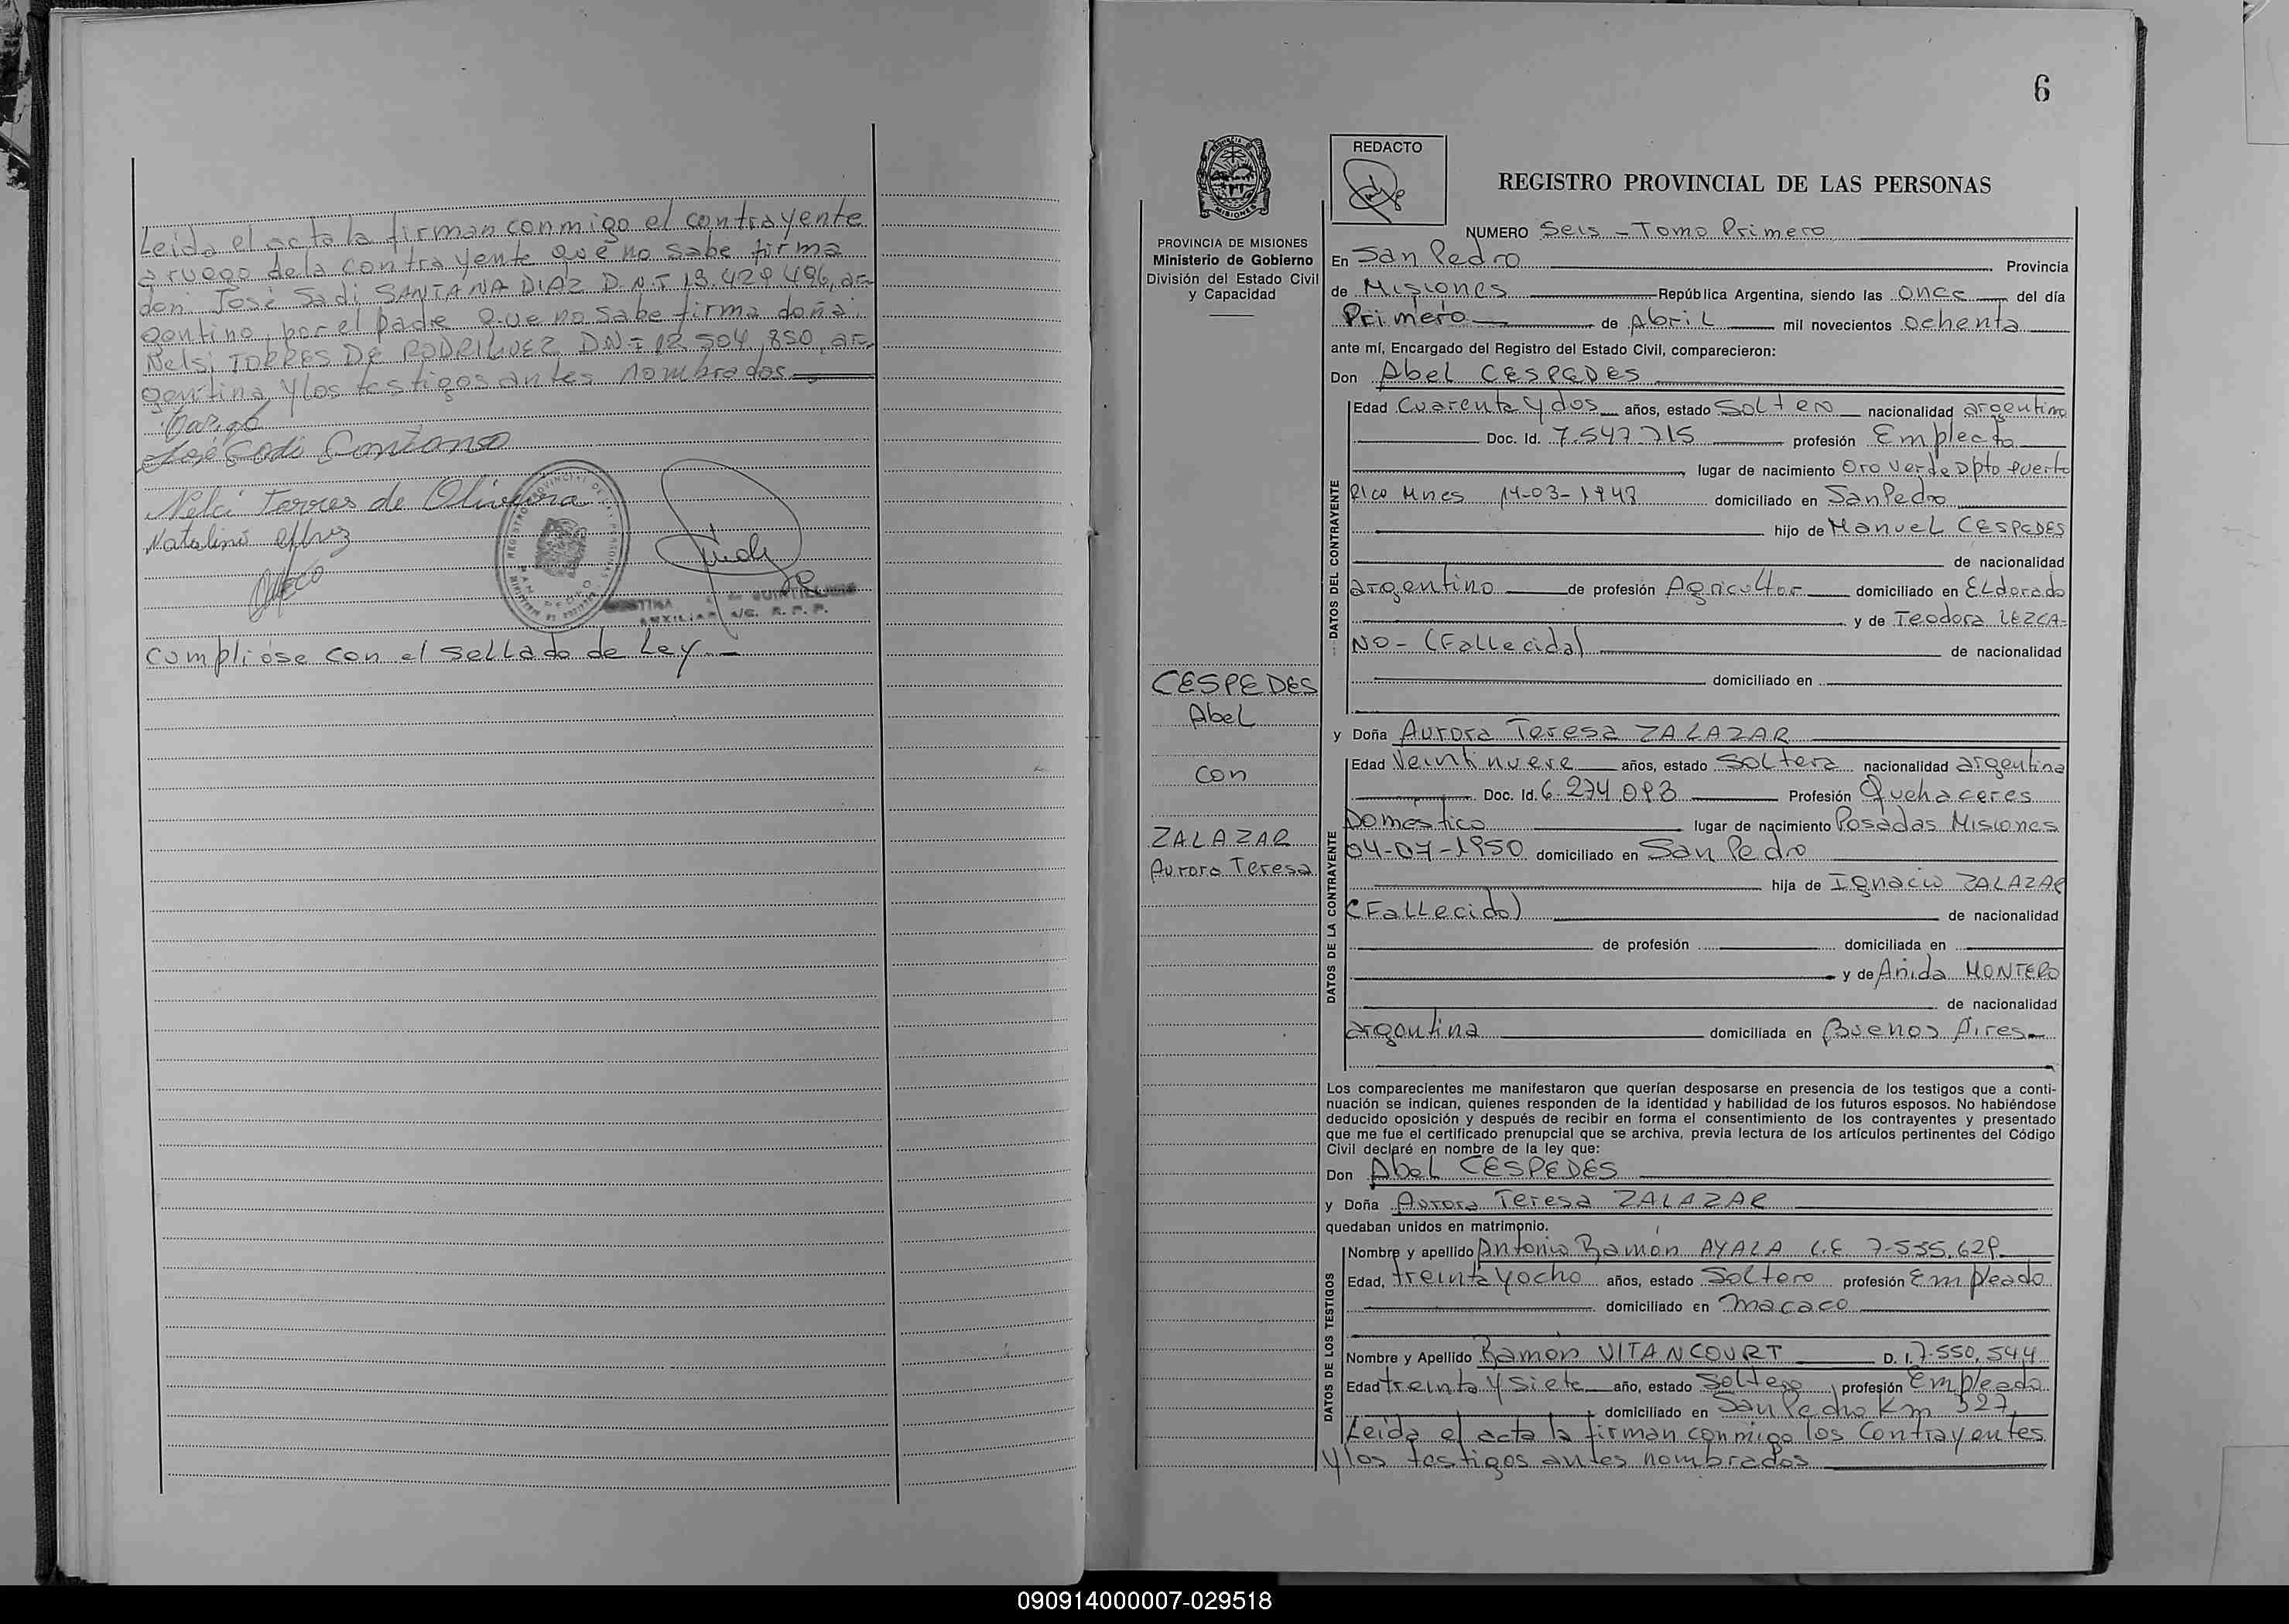 Leida el acta la firman conmigo el contrayente
a ruego de la contrayente que no sabe firma
don: José Sadi SANTANA DIAZ D.N.I 13.429.496, ar-
gentino, por el padre que no sabe firma doña:
Nelsi TORRES DE RODRIGUEZ DNI 12.504.850, ar-
gentina, y los testigos antes nombrados
José Sadi
Nelci Torres de Oliveira
Natalino
cumpliose con el sellado de Ley.-
6
PROVINCIA DE MISIONES
Ministerio de Gobierno
División del Estado Civil
y Capacidad
CESPEDES
Abel
con
ZALAZAR
Aurora Teresa
REDACTO
REGISTRO PROVINCIAL DE LAS PERSONAS
NUMERO Seis - Tomo Primero
En San Pedro Provincia
de Misiones República Argentina, siendo las once del día
Primero de Abril mil novecientos ochenta
ante mí, Encargado del Registro del Estado Civil, comparecieron:
Don Abel CESPEDES
Edad Cuarenta y dos años, estado Soltero nacionalidad argentino
Doc. Id. 7.547.715 profesión
lugar de nacimiento Oro Verde Dpto Puerto
Rico Mnes 14-03- domiciliado en San Pedro
hijo de Manuel CESPEDES
de nacionalidad
argentino de profesión Agricultor domiciliado en ELdorado
y de Teodora LEZCA-
NO - (Fallecida) de nacionalidad
domiciliado en
y Doña Aurora Teresa ZALAZAR
Edad Veintinueve años, estado Soltera nacionalidad argentina
Doc. Id. 6.274.093 Profesión Quehaceres
Domestico lugar de nacimiento Posadas Misiones
04-07-1950 domiciliado en San Pedro
hija de Ignacio ZALAZAR
(Fallecido) de nacionalidad
de profesión domiciliada en
y de Anida MONTERO
de nacionalidad
argentina domiciliada en Buenos Aires
Los comparecientes me manifestaron que querían desposarse en presencia de los testigos que a conti-
nuación se indican, quienes responden de la identidad y habilidad de los futuros esposos. No habiéndose
deducido oposición y después de recibir en forma el consentimiento de los contrayentes y presentado
que me fue el certificado prenupcial que se archiva, previa lectura de los artículos pertinentes del Código
Civil declaré en nombre de la ley que:
Don Abel CESPEDES
y Doña Aurora Teresa ZALAZAR
quedaban unidos en matrimonio.
Nombre y apellido Antonio Ramón AYALA L.E 7-535.629
Edad, treinta y ocho años, estado Soltero profesión Empleado
domiciliado en macaco
Nombre y Apellido Ramón VITANCOURT D. I. 7-550.544
Edad treinta y siete año, estado Soltero profesión Empleado
domiciliado en San Pedro Km 327
Leida el acta la firman conmigo los Contrayentes
y los testigos antes nombrados
DATOS DEL CONTRAYENTE
DATOS DE LA CONTRAYENTE
DATOS DE LOS TESTIGOS
090914000007-029518